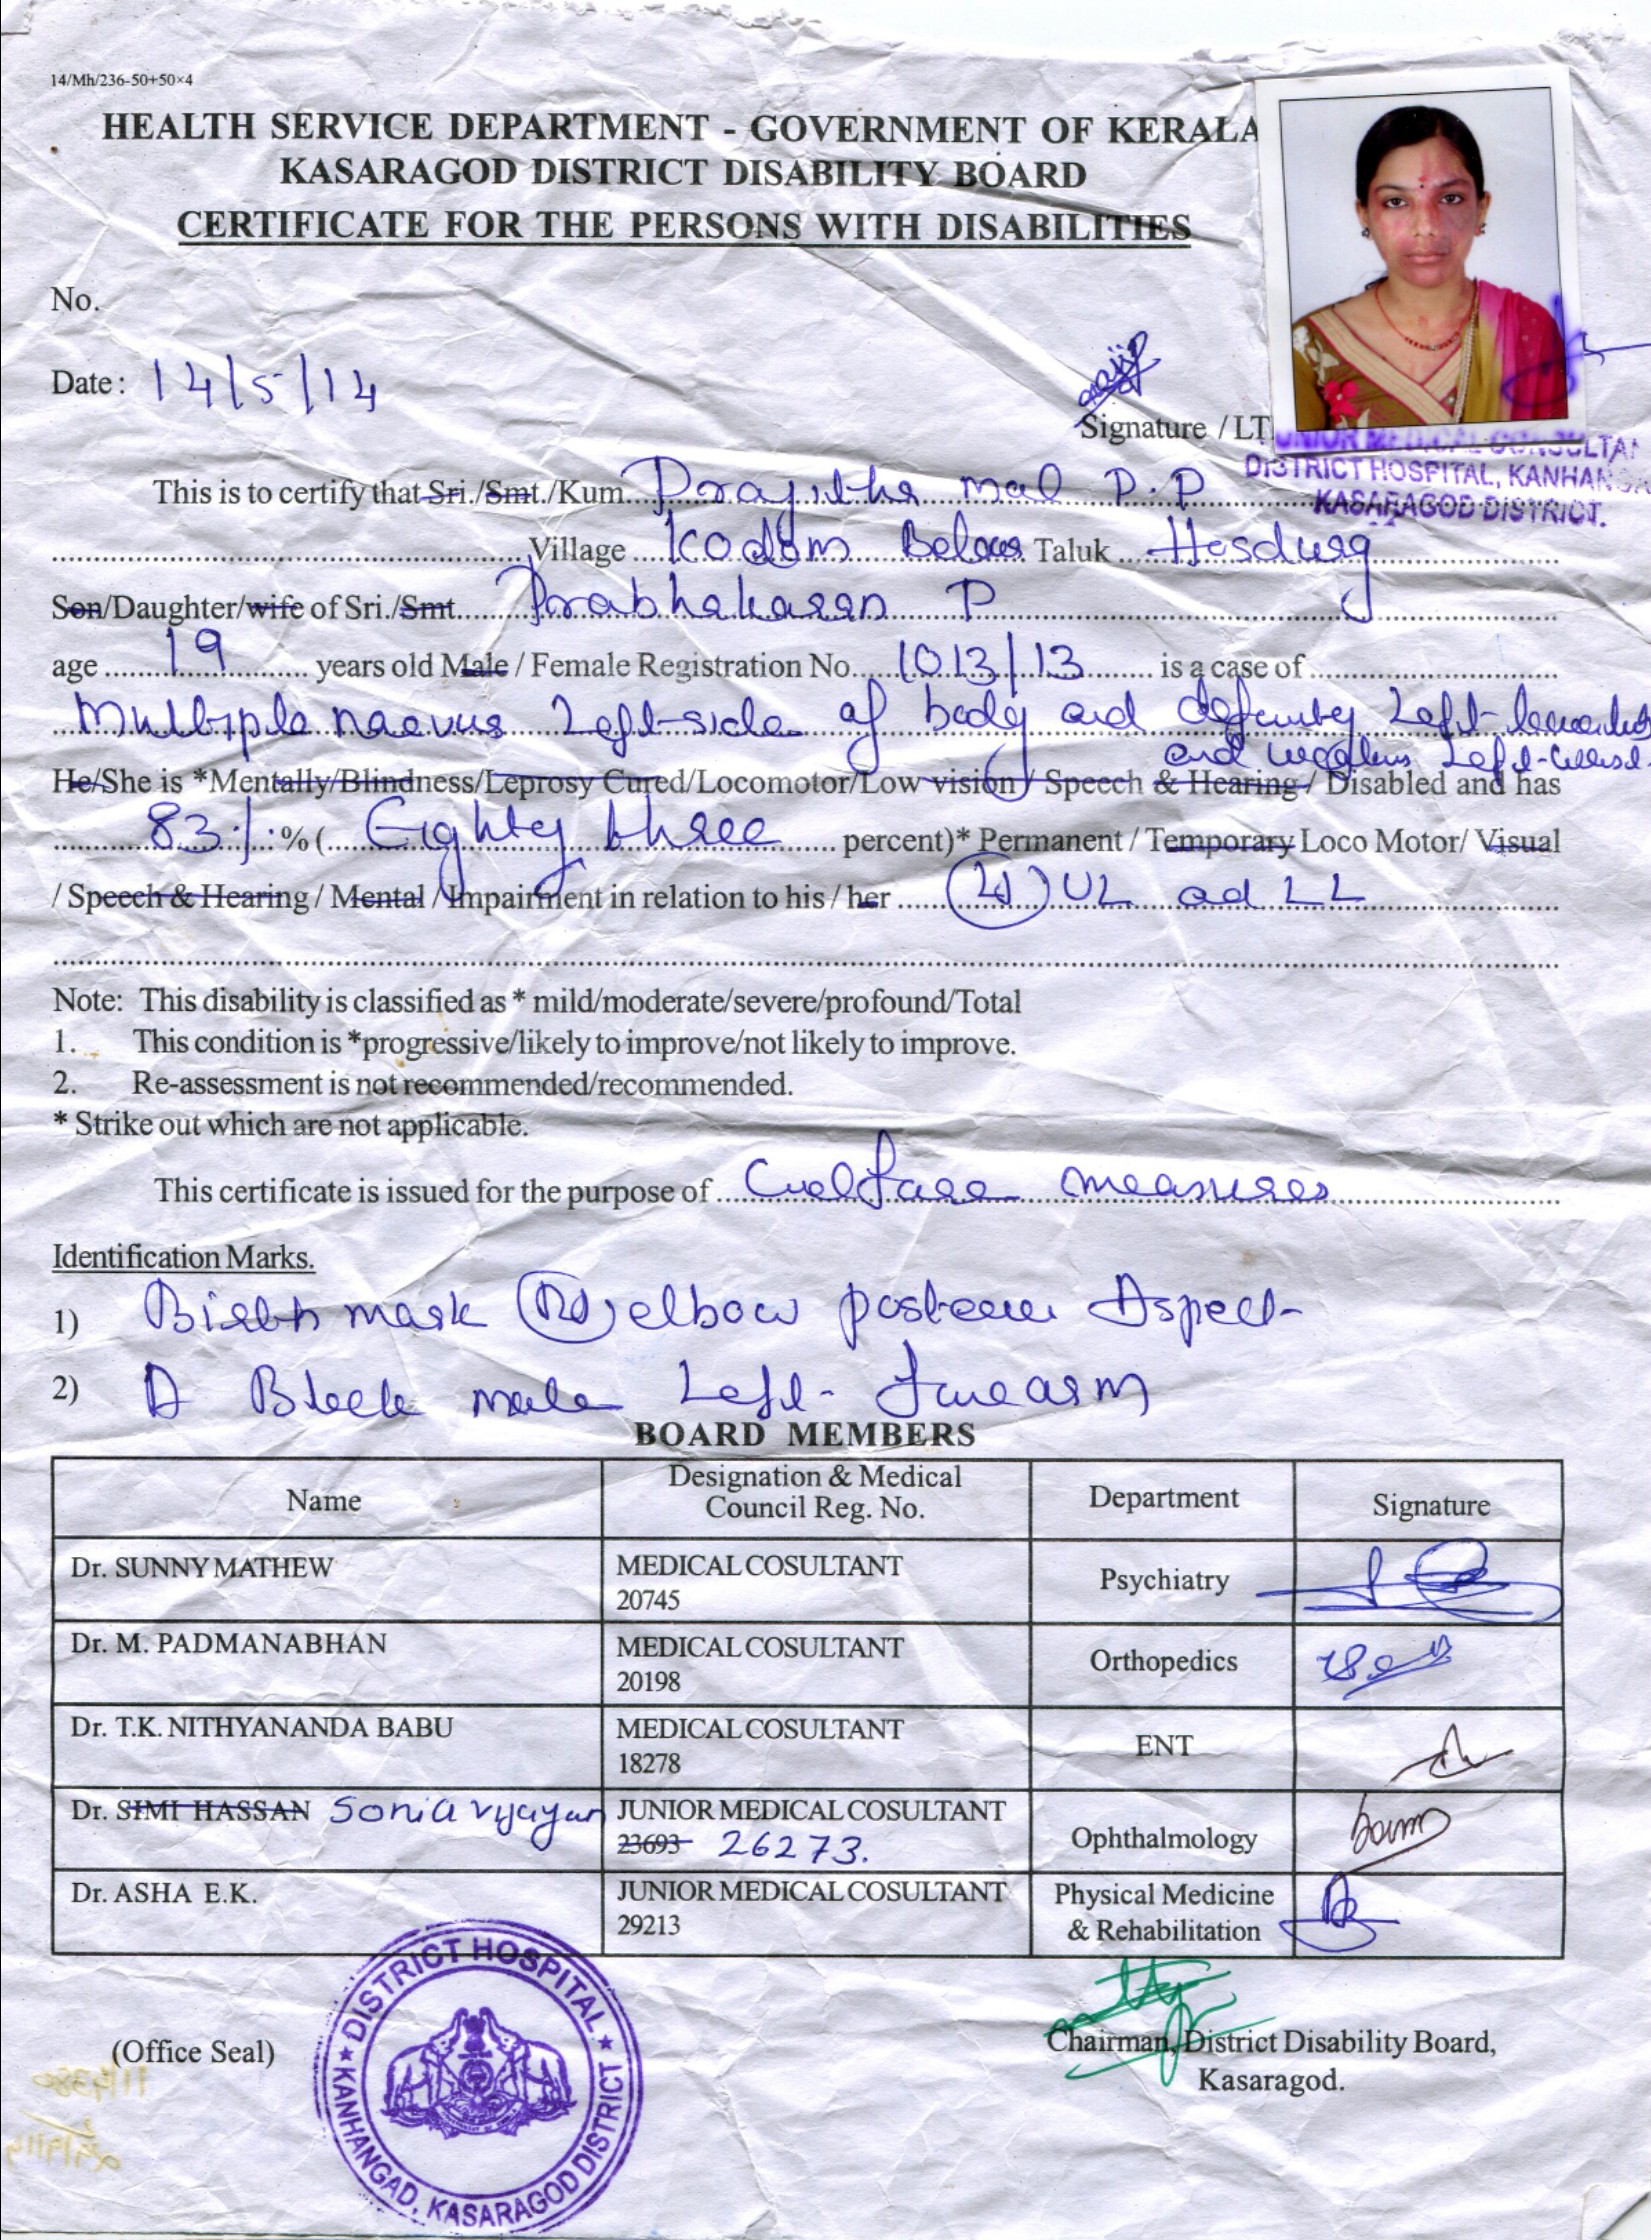 14/Mh/236-50+50×4
HEALTH SERVICE DEPARTMENT - GOVERNMENT OF KERALA
KASARAGOD DISTRICT DISABILITY BOARD
CERTIFICATE FOR THE PERSONS WITH DISABILITIES
No.
Date : 14/5/14
Signature / LT
JUNIOR MEDICAL CONSULTAN
DISTRICT HOSPITAL, KANHANGA
KASARAGOD DISTRICT.
This is to certify that Sri./Smt./Kum. Prajitha mol P.P
Village Kodom Belur Taluk Hosdurg
Son/Daughter/wife of Sri./Smt. Prabhakaran P
age 19 years old Male / Female Registration No. 1013/13 is a case of
Multiple naevus Left side of body and deformity Left
and Left
He/She is *Mentally/Blindness/Leprosy Cured/Locomotor/Low vision / Speech & Hearing / Disabled and has
83% % ( Eighty three percent)* Permanent / Temporary Loco Motor/ Visual
/ Speech & Hearing / Mental / Impairment in relation to his / her (Lt) UL ad LL
Note: This disability is classified as * mild/moderate/severe/profound/Total
1. This condition is *progressive/likely to improve/not likely to improve.
2. Re-assessment is not recommended/recommended.
* Strike out which are not applicable.
This certificate is issued for the purpose of welfare measures
Identification Marks.
1) Birth mark (Rt) elbow posterior Aspect
2) A Black mole Left forearm
BOARD MEMBERS
Name Designation & Medical Council Reg. No. Department Signature
Dr. SUNNY MATHEW MEDICAL COSULTANT 20745 Psychiatry
Dr. M. PADMANABHAN MEDICAL COSULTANT 20198 Orthopedics
Dr. T.K. NITHYANANDA BABU MEDICAL COSULTANT 18278 ENT
Dr. SIMI HASSAN Sonia Vijayan JUNIOR MEDICAL COSULTANT 23693 26273. Ophthalmology
Dr. ASHA E.K. JUNIOR MEDICAL COSULTANT 29213 Physical Medicine & Rehabilitation
(Office Seal)
DISTRICT HOSPITAL
KANHANGAD, KASARAGOD DISTRICT
Chairman, District Disability Board,
Kasaragod.